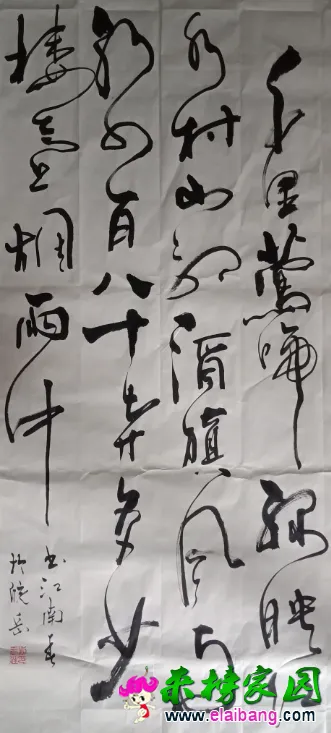 千里鶯啼綠映红
水村山郭酒旗風南
朝四百八十寺多少
樓臺烟雨中
书江南春
於皖岳
来榜家园
www.elaibang.com